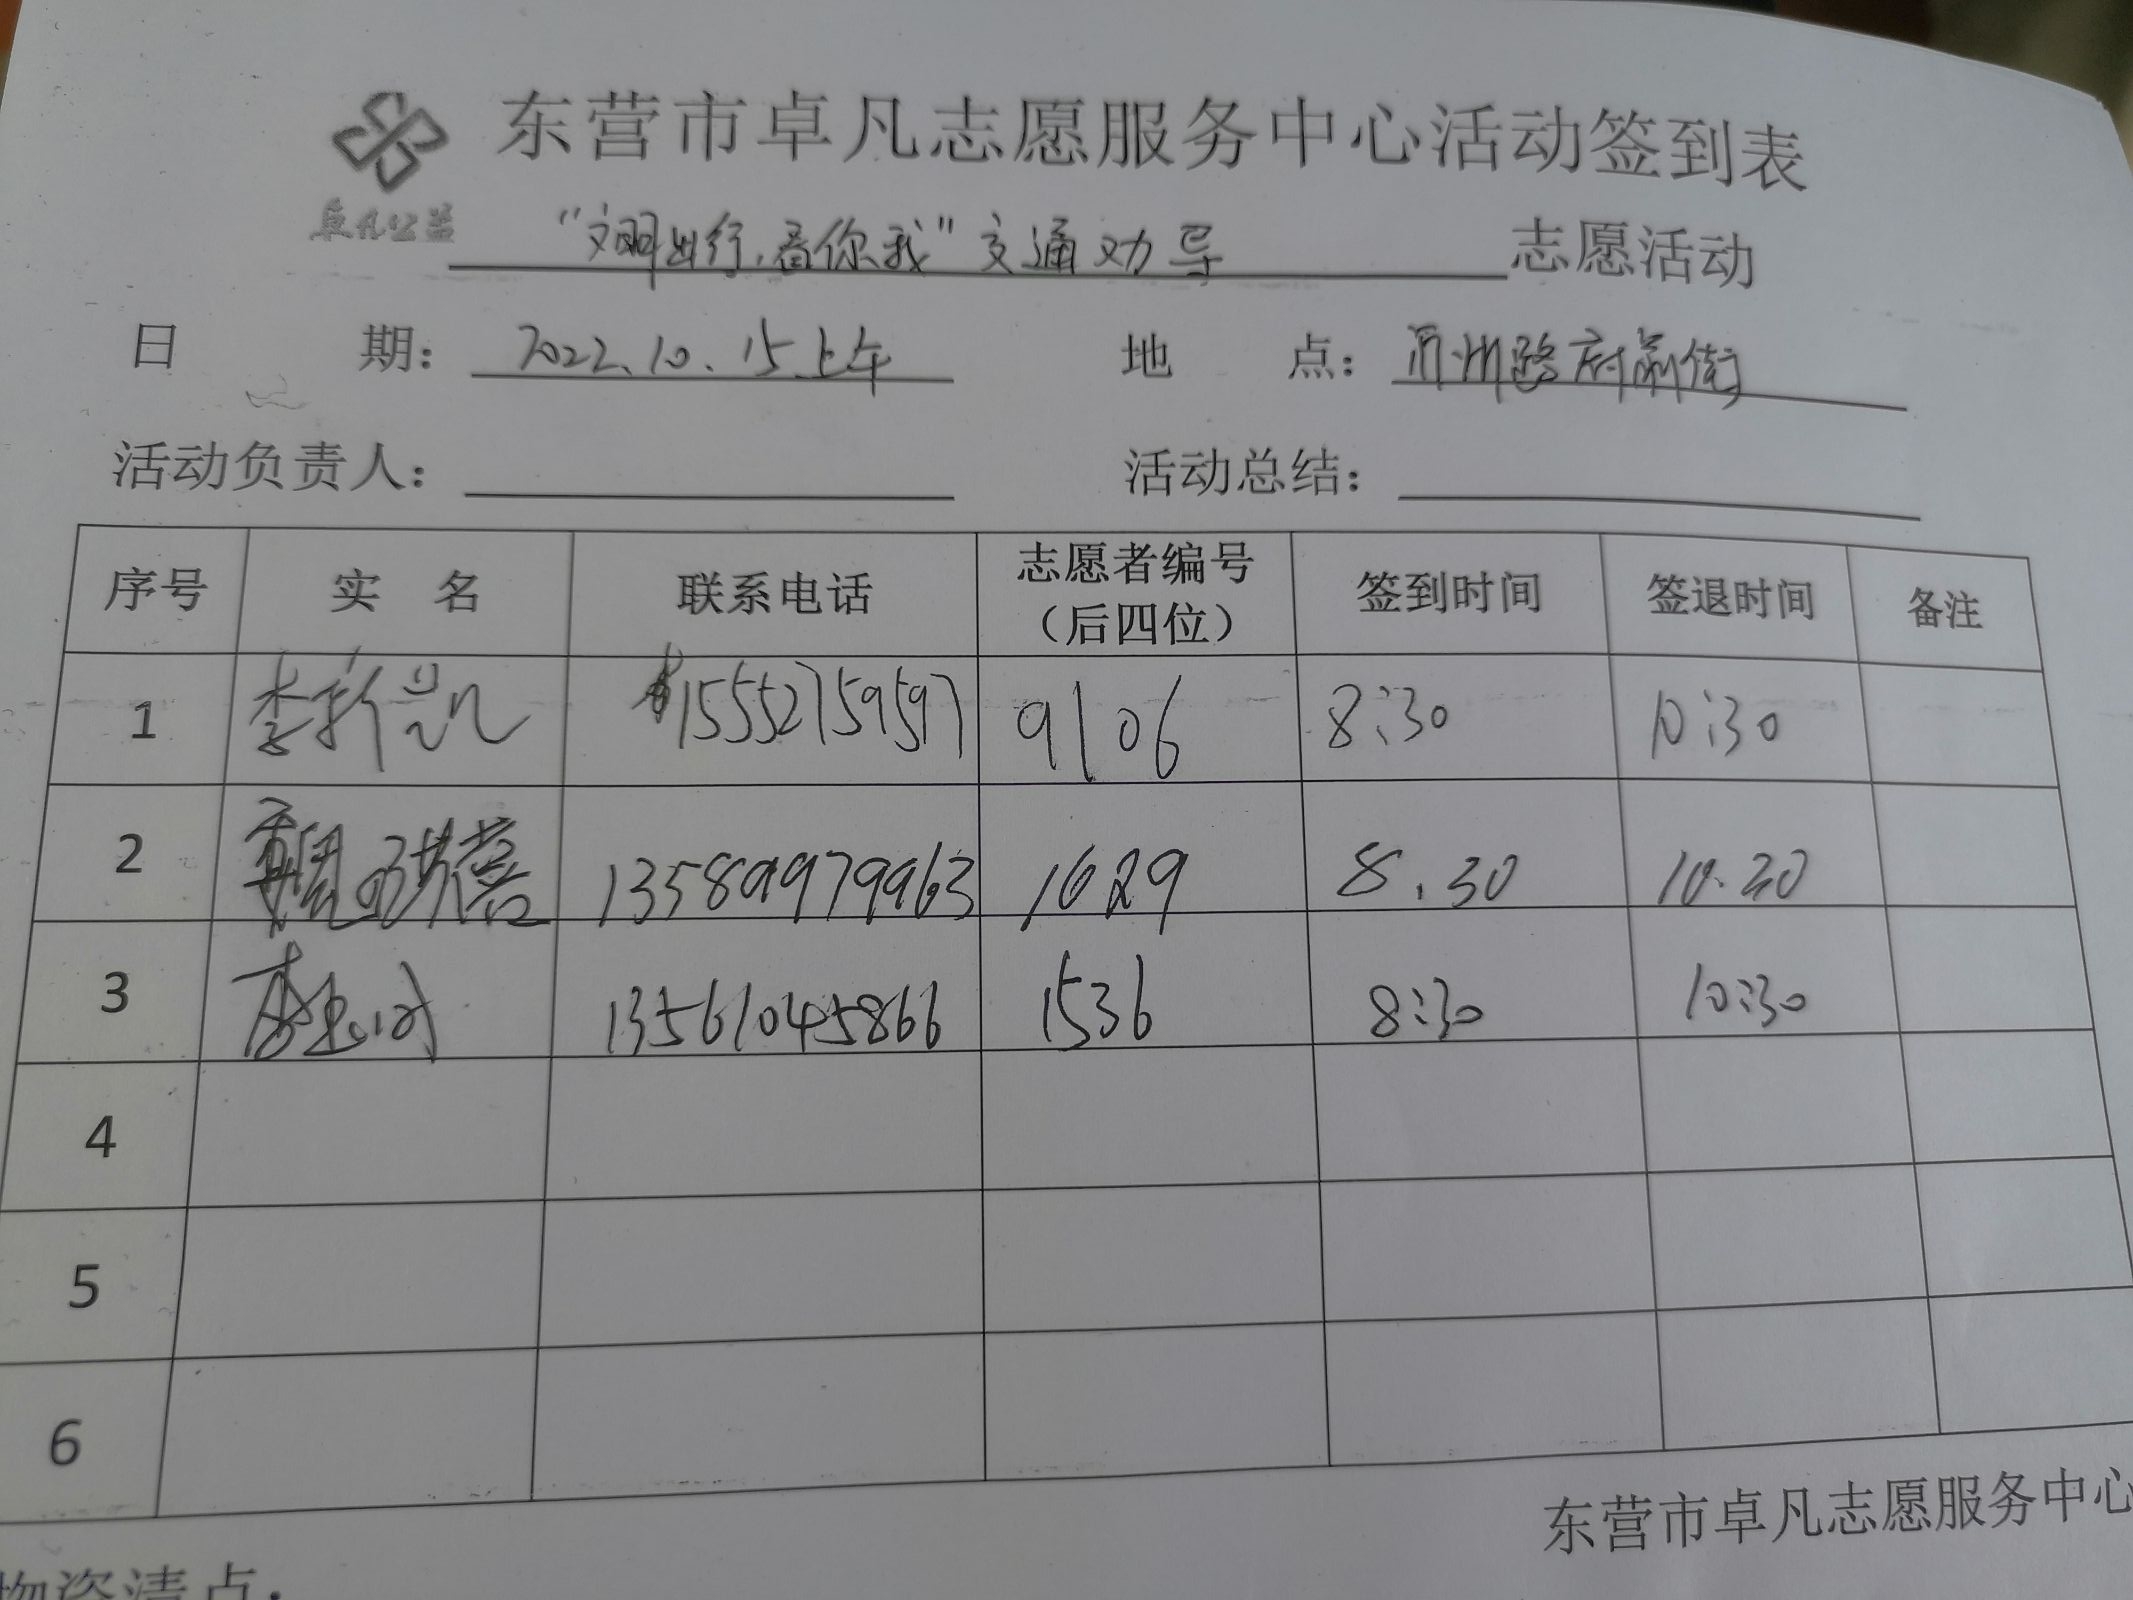 东营市卓凡志愿服务中心活动签到表
卓凡公益
“文明出行,看你我”交通劝导 志愿活动
日 期: 2022.10.15上午 地 点: 州路府前街
活动负责人: 活动总结:
序号 实 名 联系电话 志愿者编号(后四位) 签到时间 签退时间 备注
1 李新凯 15552759597 9106 8:30 10:30
2 13589979963 1629 8.30 10.30
3 13561045866 1536 8:30 10:30
4
5
6
东营市卓凡志愿服务中心
物资清点: